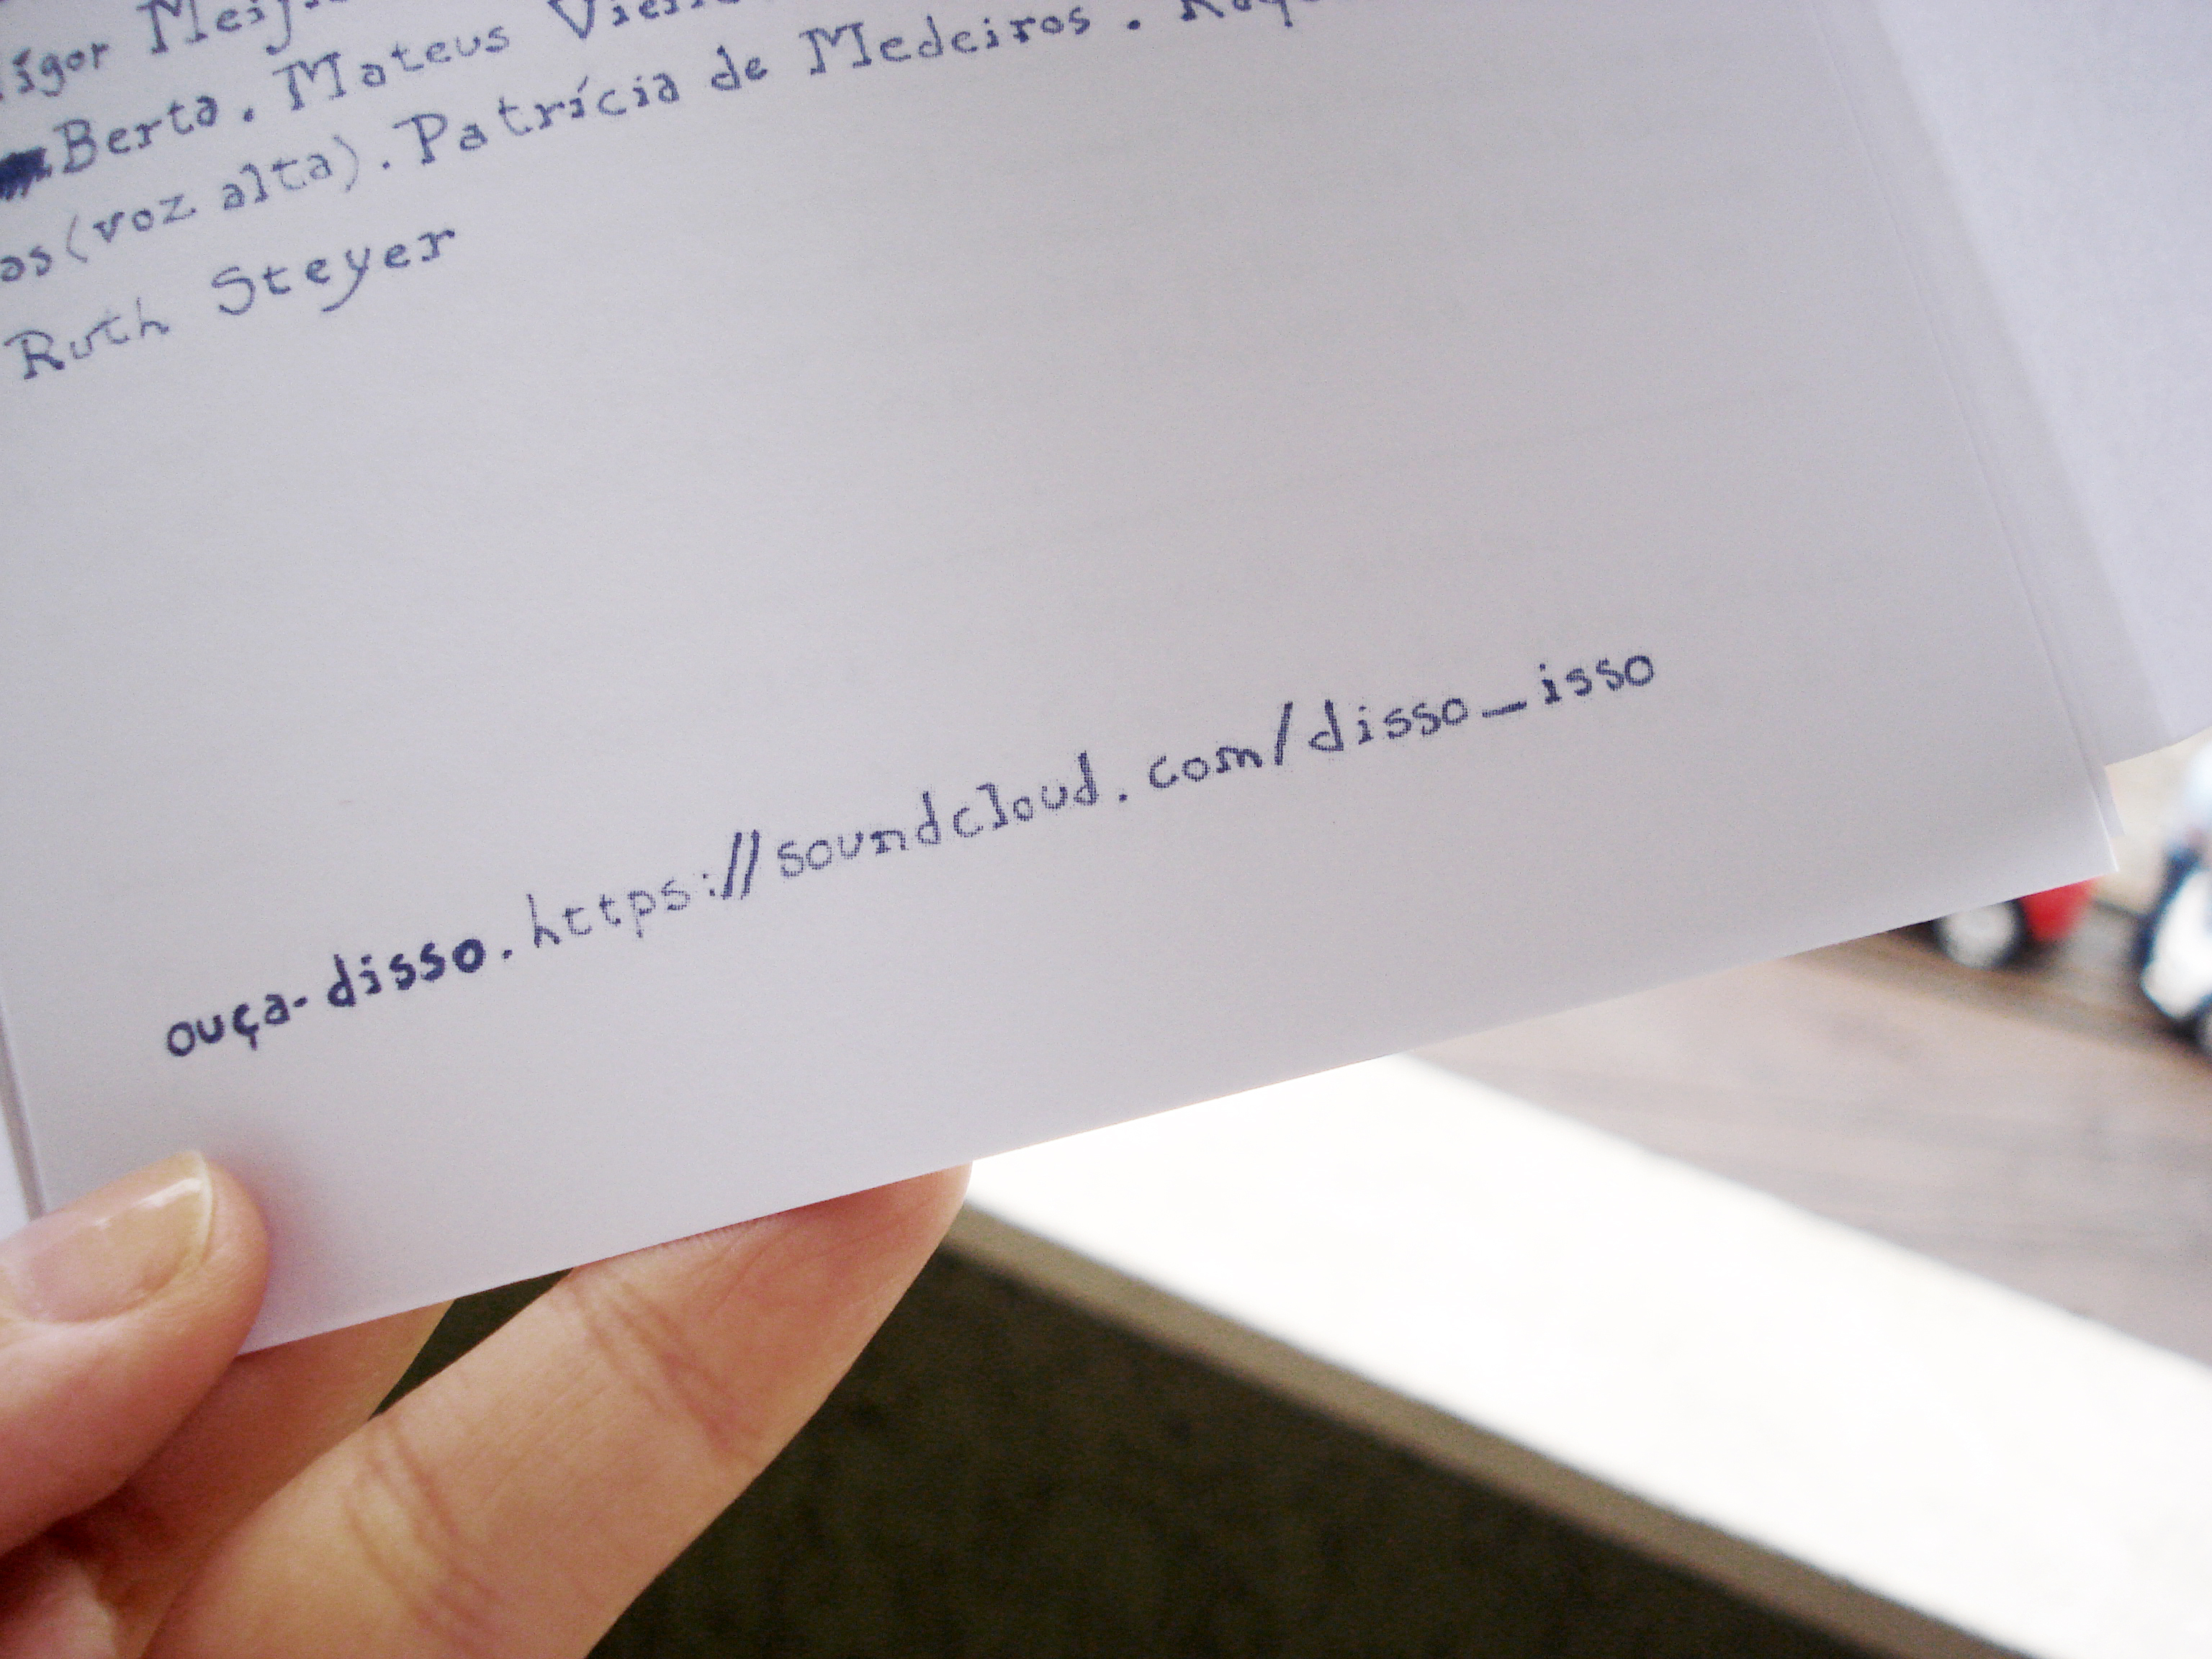 Berta. Mateus
(voz alta). Patrícia de Medeiros.
Ruth Steyer
ouça-disso. https://soundcloud.com/disso_isso